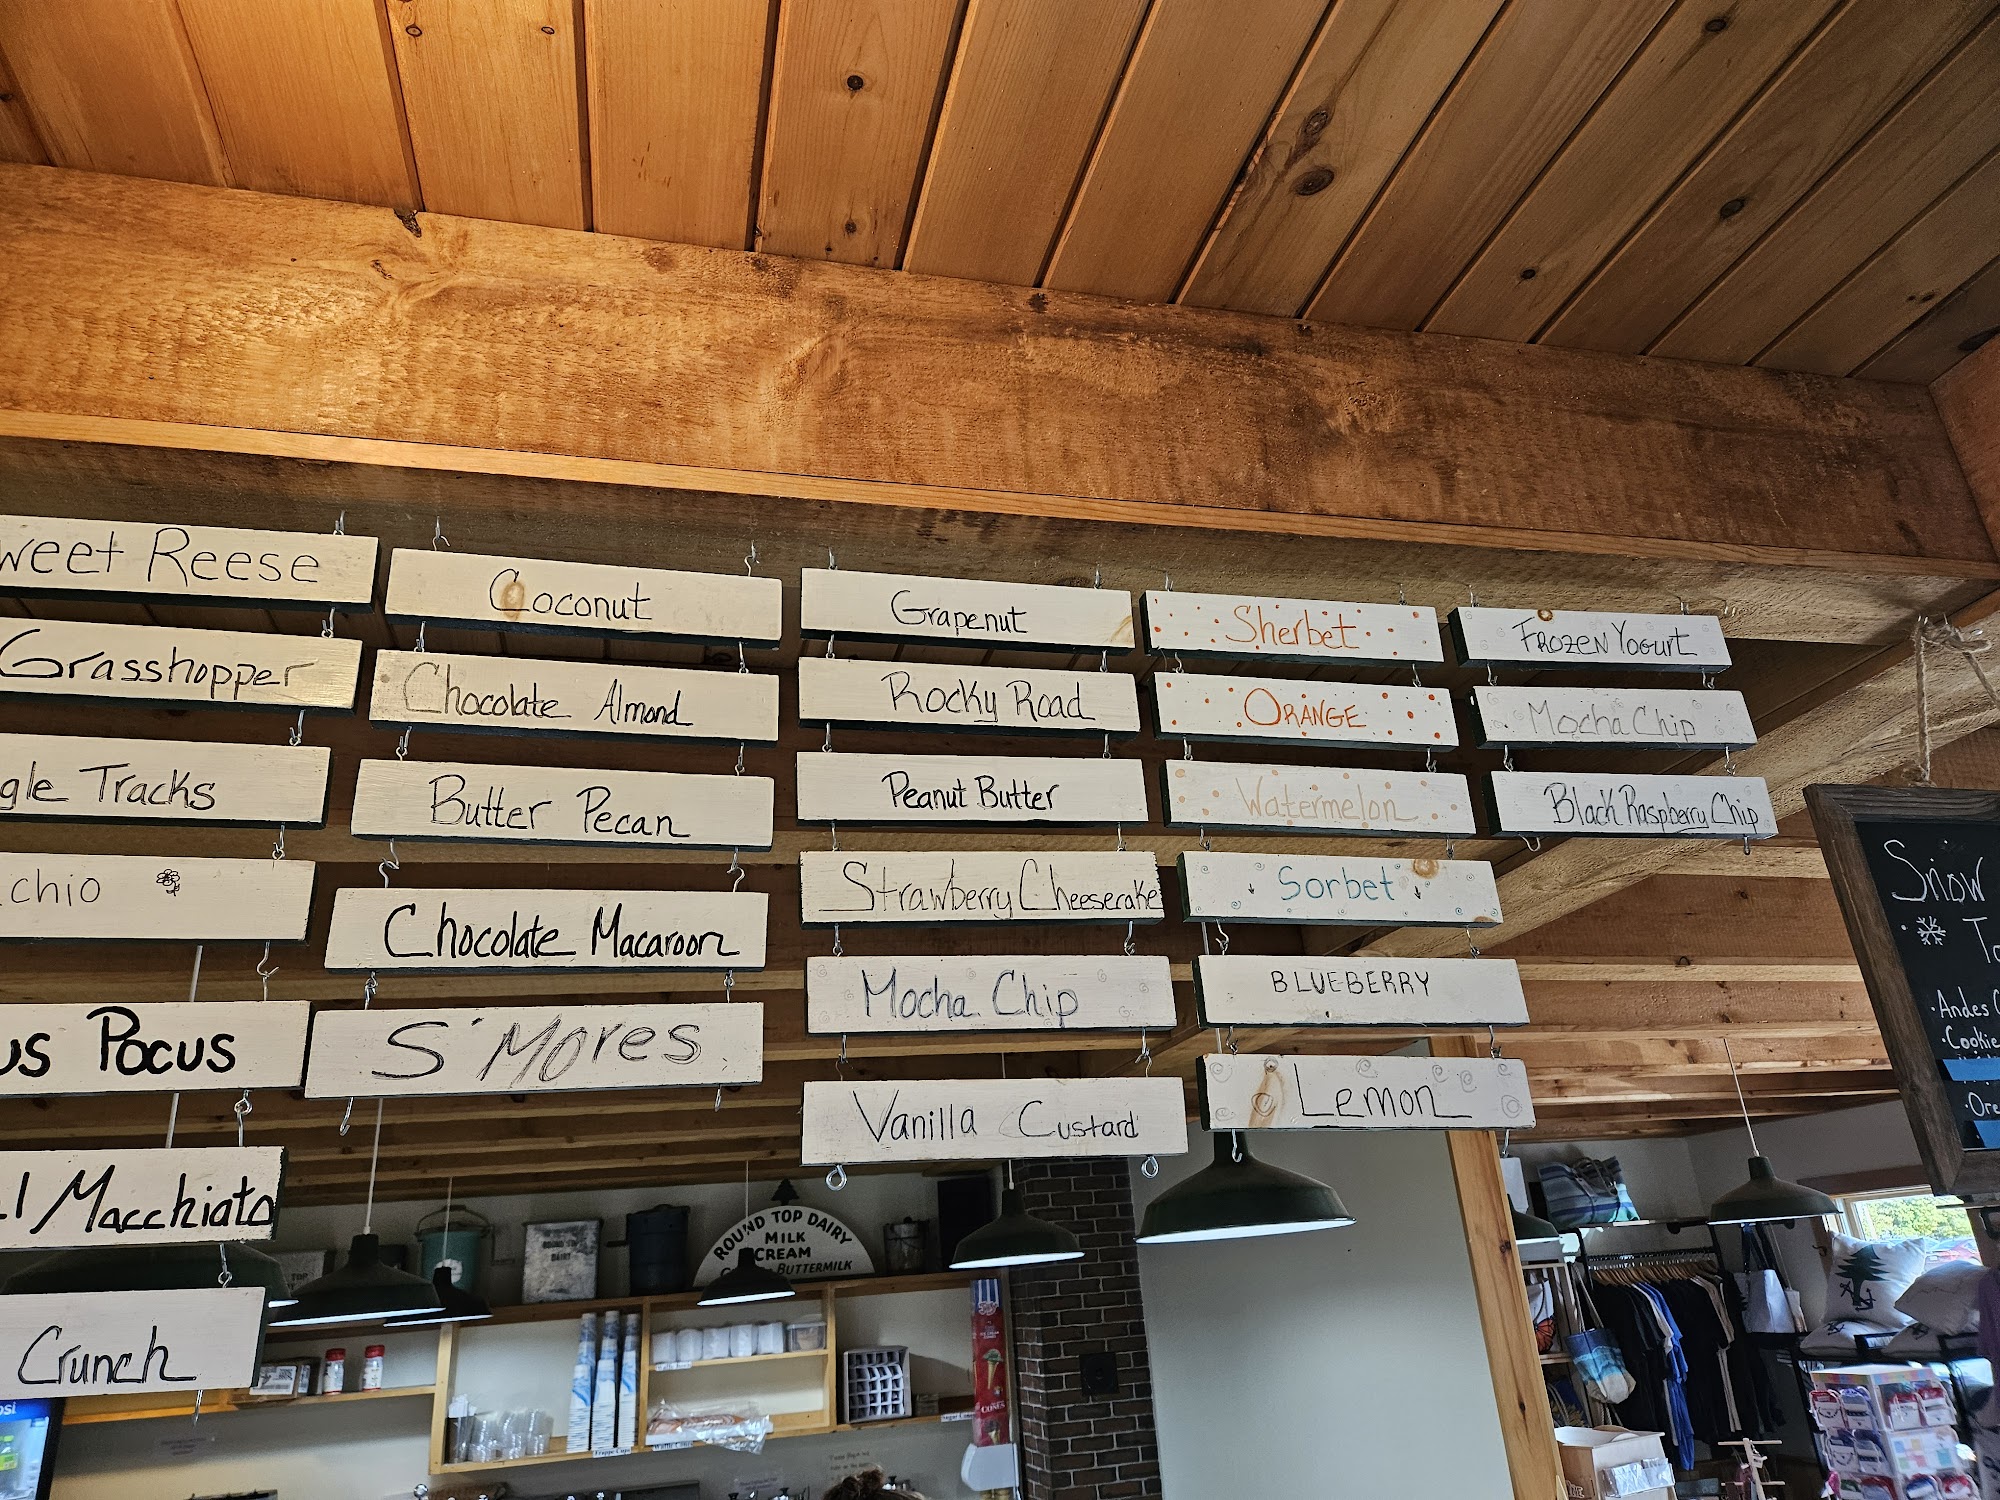 weet Reese
Grasshopper
gle Tracks
chio
us Pocus
l Macchiato
Crunch
Coconut
Chocolate Almond
Butter Pecan
Chocolate Macaroon
S'Mores
Grapenut
Rocky Road
Peanut Butter
Strawberry Cheesecake
Mocha Chip
Vanilla Custard
Sherbet
ORANGE
Watermelon
Sorbet
BLUEBERRY
Lemon
FROZEN YOGURT
Mocha Chip
Black Raspberry Chip
Snow
To
·Andes C
·Cookie
·Ore
ROUND TOP DAIRY
MILK
CREAM
BUTTERMILK